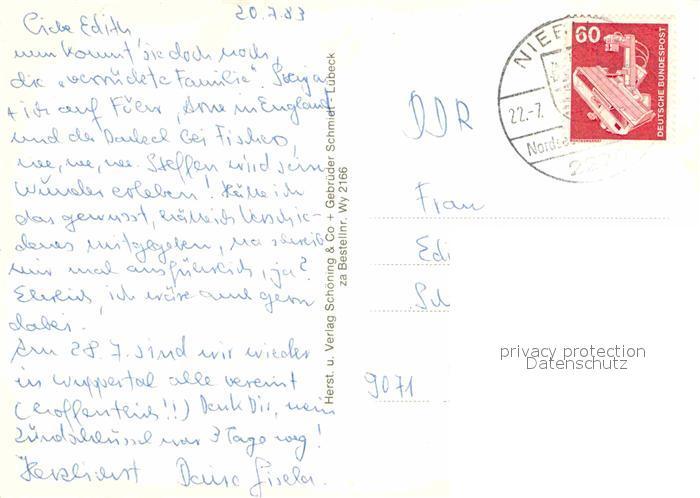 20.7.83
Liebe Edith,
nun kommt sie doch noch,
die „verrückte Familie".
+ ich auf Föhr, Arne in England
und der Dankert bei Fischers,
ne, ne, ne. Steffen wird sein
Wunder erleben! Hätte ich
das gewusst, hätte ich Verschie-
denes mitgegeben, na schreib
mir mal ausführlich, ja?
Ehrlich, ich wäre auch gern
dabei.
Am 28.7. sind wir wieder
in Wuppertal alle vereint
(hoffentlich!!) Denk Dir, mein
Zündschlüssel war 3 Tage weg!
Herzlichst Deine Gisela.
Herst. u. Verlag Schöning & Co + Gebrüder Schmidt, Lübeck
za Bestellnr. Wy 2166
NIEB
22.-7.
Nordse
22
60
DEUTSCHE BUNDESPOST
DDR
Frau
Edi
Sch
9071
privacy protection
Datenschutz